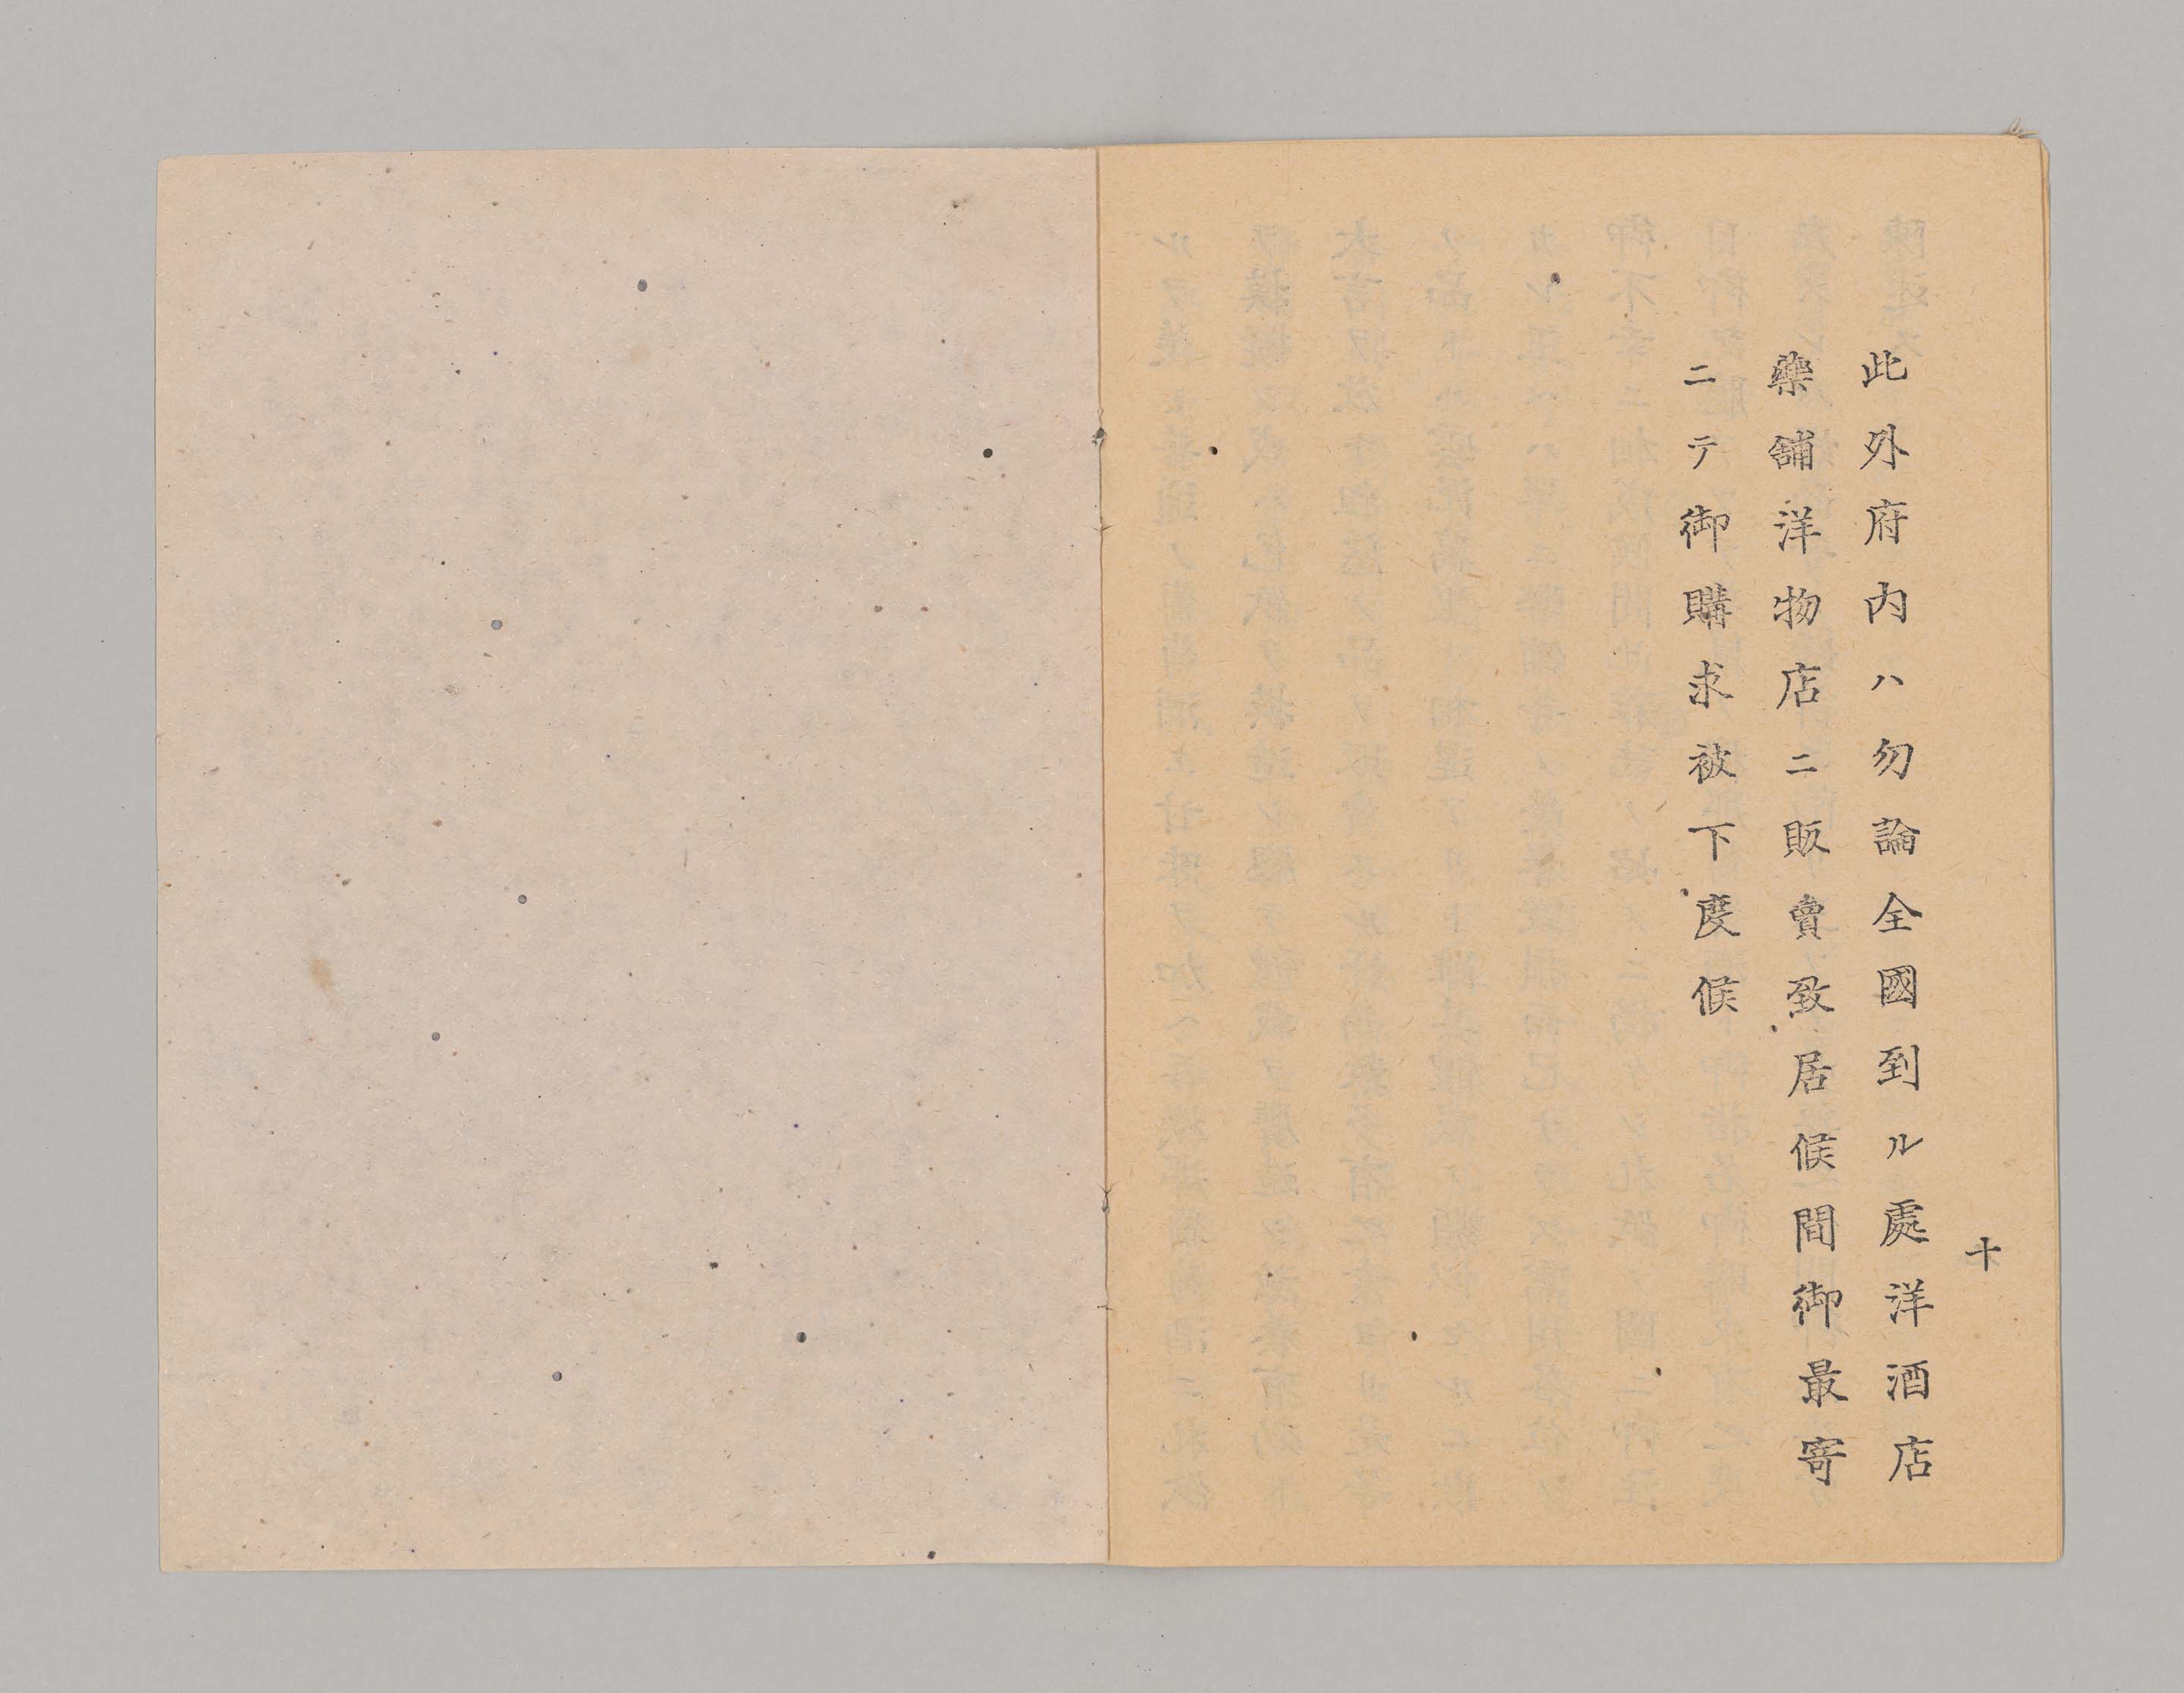 十
此外府内ハ勿論全國到ル處洋酒店
藥舖洋物店ニ販賣致居候間御最寄
ニテ御購求被下度候